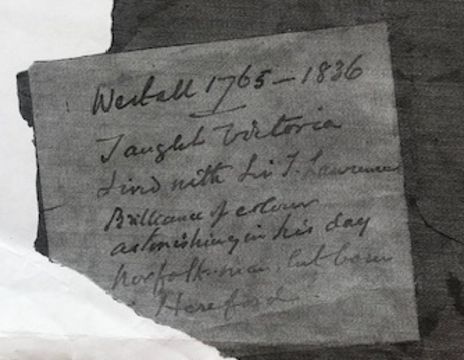 Westall 1765 – 1836
Taught Victoria
Lived with Sir T. Lawrence
Brilliance of colour
astonishing in his day
Norfolk man, but born
Hereford